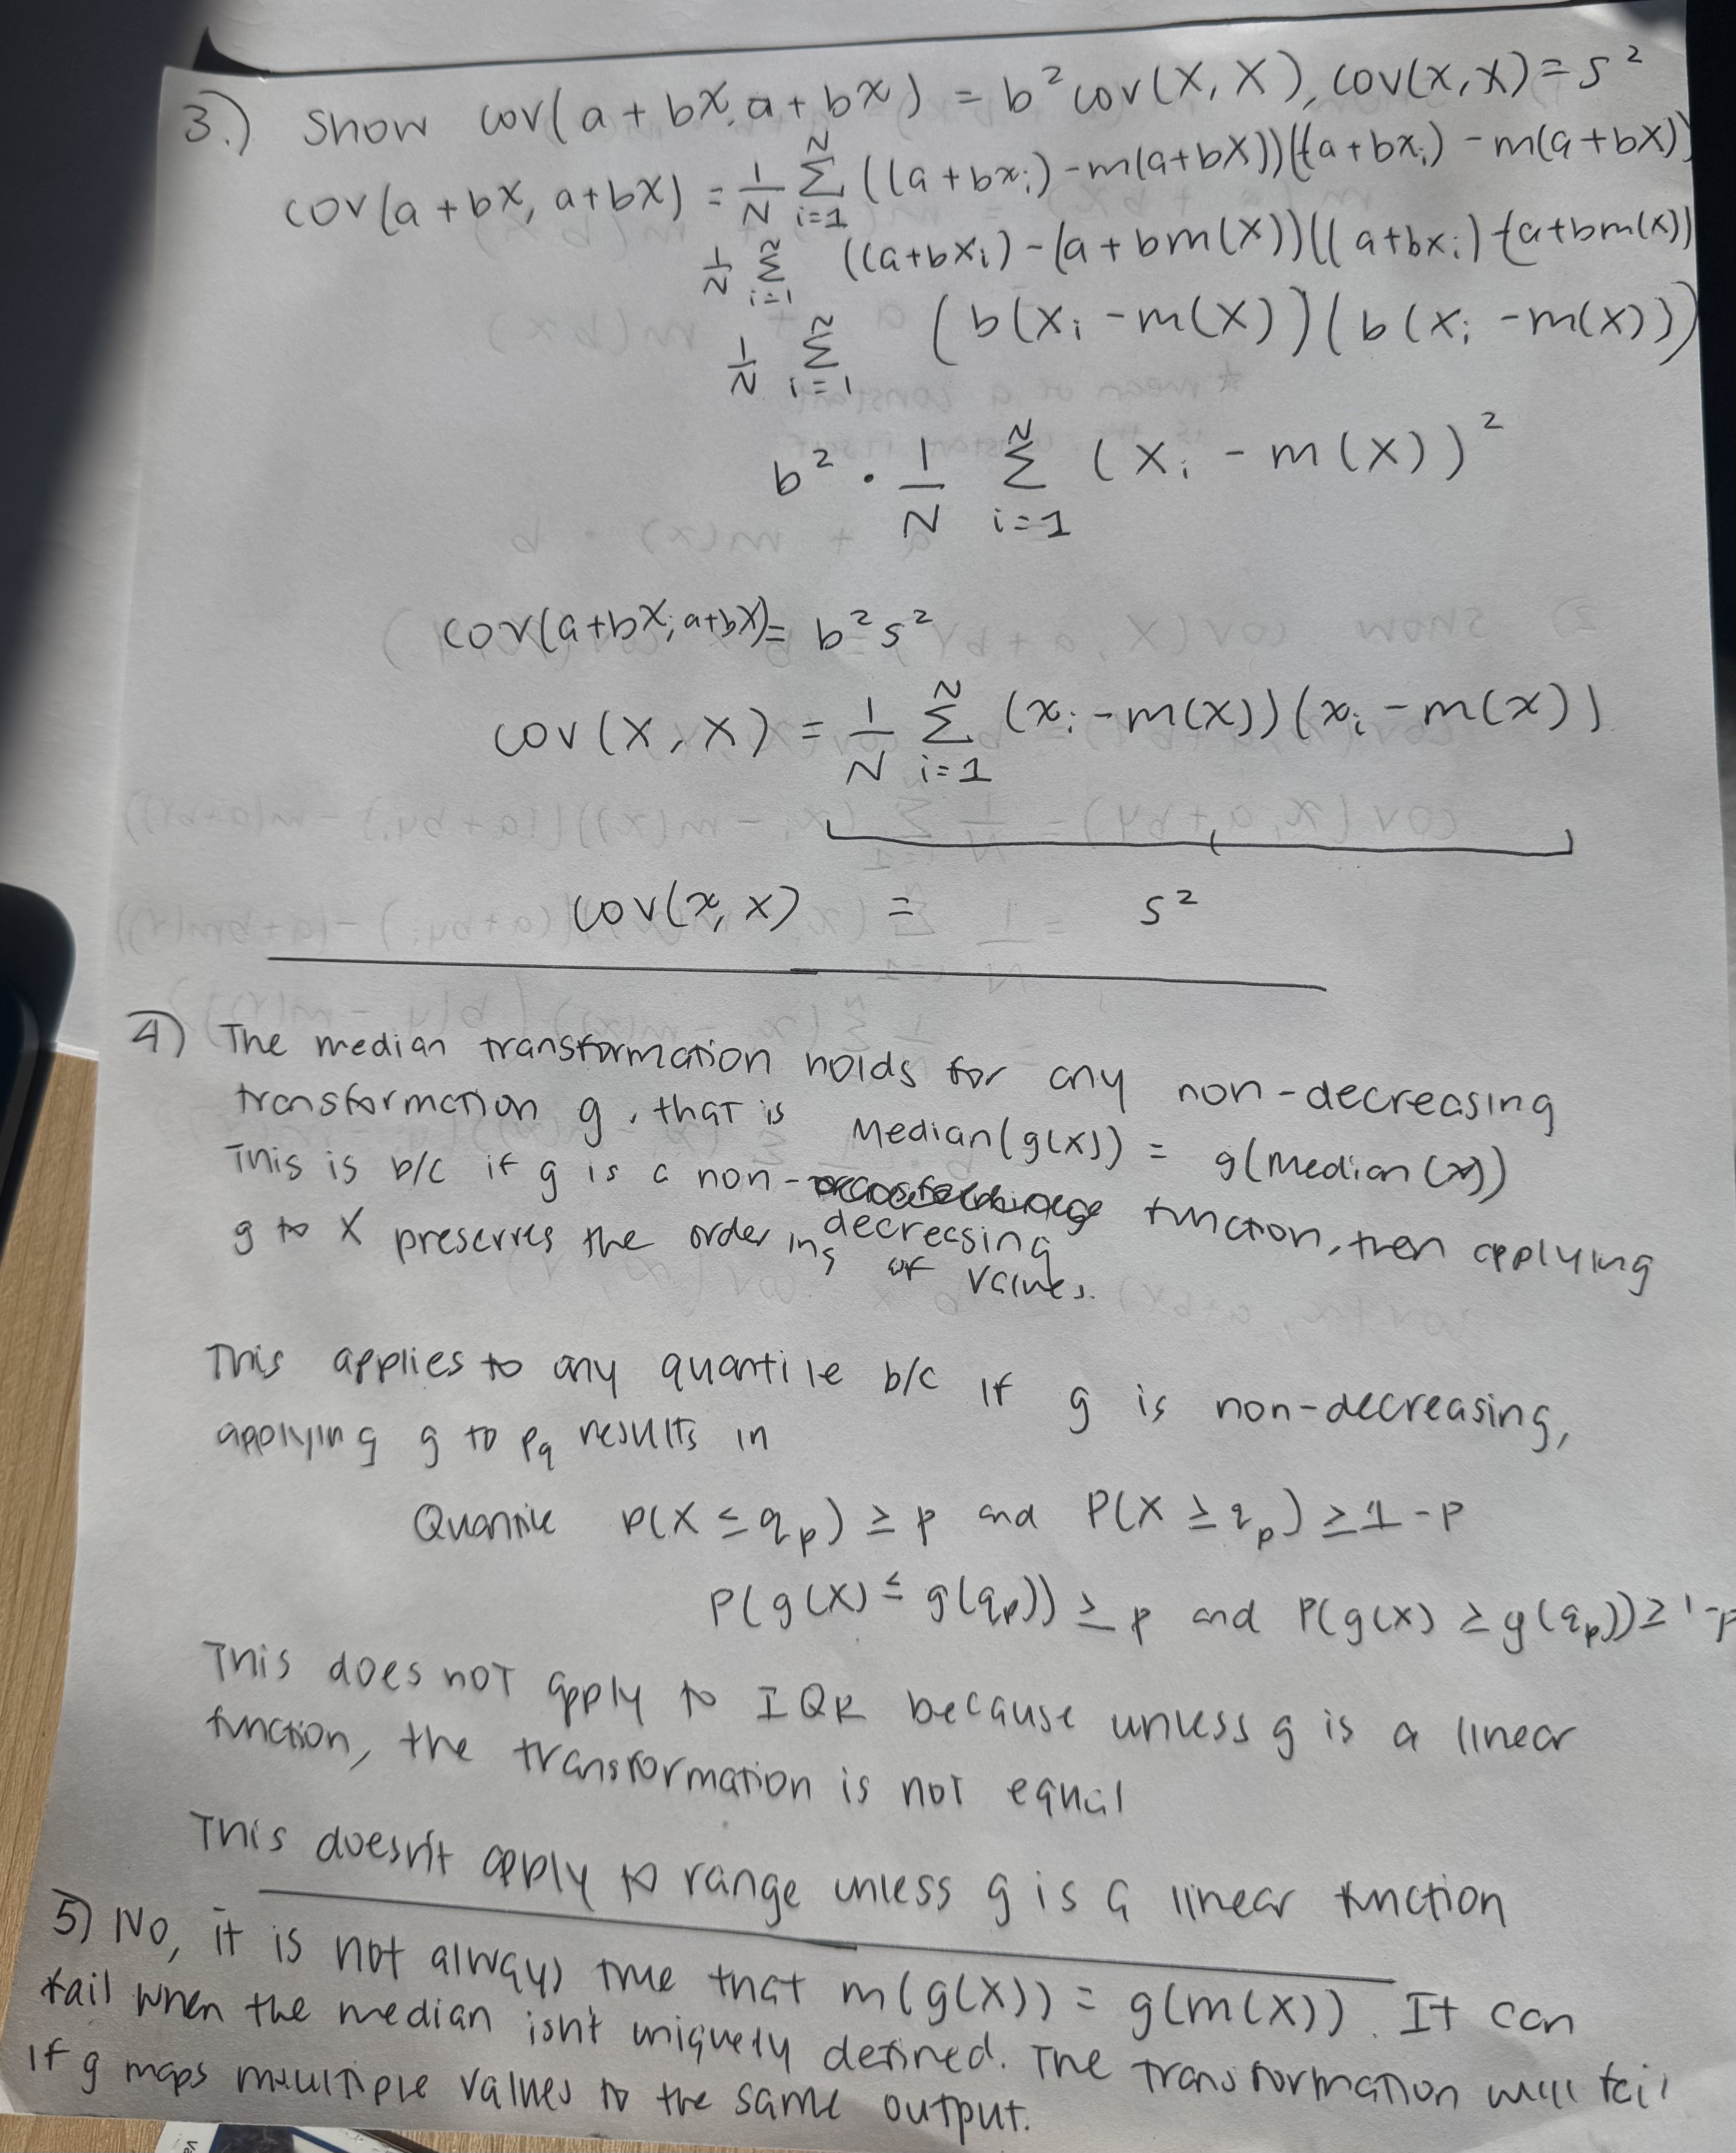 3.) Show cov(a + bX, a + bX) = b² cov(X, X), cov(X, X) = s²
cov(a + bX, a + bX) = 1/N Σ_{i=1}^{N} ((a + bx_i) - m(a+bX))((a + bx_i) - m(a + bX))
1/N Σ_{i=1}^{N} ((a+bx_i) - (a + bm(X))((a+bx_i) - (a+bm(X))
1/N Σ_{i=1}^{N} (b(x_i - m(X))(b(x_i - m(X)))
b² · 1/N Σ_{i=1}^{N} (x_i - m(X))²
cov(a+bX, a+bX) = b²s²
cov(X, X) = 1/N Σ_{i=1}^{N} (x_i - m(X))(x_i - m(X))
cov(X, X) = s²
4) The median transformation holds for any non-decreasing
transformation g, that is Median(g(X)) = g(Median(X))
This is b/c if g is a non-decreasing function, then applying
g to X preserves the ordering of values.
This applies to any quantile b/c if g is non-decreasing,
applying g to pq results in
Quantile P(X ≤ q_p) ≥ p and P(X ≥ q_p) ≥ 1 - p
P(g(X) ≤ g(q_p)) ≥ p and P(g(X) ≥ g(q_p)) ≥ 1 - p
This does not apply to IQR because unless g is a linear
function, the transformation is not equal
This doesn't apply to range unless g is a linear function
5) No, it is not always true that m(g(X)) = g(m(X)). It can
fail when the median isn't uniquely defined. The transformation will fail
if g maps multiple values to the same output.